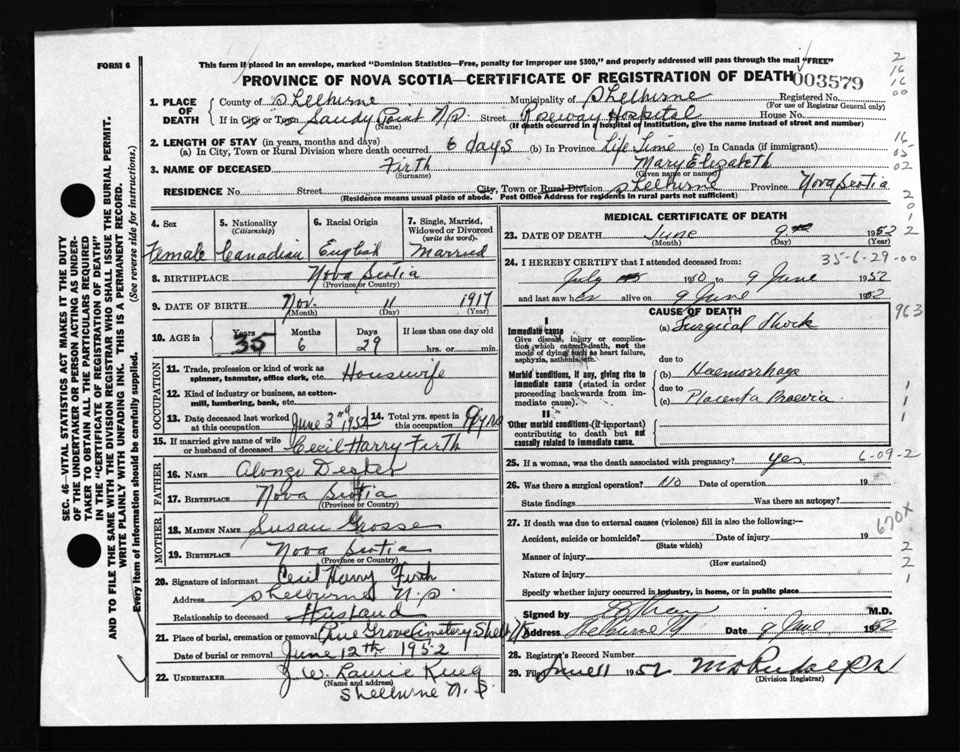 FORM 6
This form if placed in an envelope, marked "Dominion Statistics—Free, penalty for improper use $300," and properly addressed will pass through the mail "FREE"
PROVINCE OF NOVA SCOTIA—CERTIFICATE OF REGISTRATION OF DEATH 003579
1. PLACE OF DEATH County of Shelburne Municipality of Shelburne Registered No.
(For use of Registrar General only)
If in City or Town Sandy Point N.S. Street Roseway Hospital House No.
(Name) (If death occurred in a hospital or institution, give the name instead of street and number)
2. LENGTH OF STAY (in years, months and days)
(a) In City, Town or Rural Division where death occurred 6 days (b) In Province Life Time (c) In Canada (if immigrant)
3. NAME OF DECEASED Firth Mary Elizabeth
(Surname) (Given name or names)
RESIDENCE No. Street City, Town or Rural Division Shelburne Province Nova Scotia
(Residence means usual place of abode. Post Office Address for residents in rural parts not sufficient)
4. Sex 5. Nationality (Citizenship) 6. Racial Origin 7. Single, Married, Widowed or Divorced (write the word)
Female Canadian English Married
8. BIRTHPLACE Nova Scotia
(Province or Country)
9. DATE OF BIRTH Nov. 11 1917
(Month) (Day) (Year)
10. AGE in Years Months Days If less than one day old
35 6 29 hrs. or min.
OCCUPATION
11. Trade, profession or kind of work as spinner, teamster, office clerk, etc. Housewife
12. Kind of industry or business, as cotton-mill, lumbering, bank, etc.
13. Date deceased last worked at this occupation June 3rd 1952 14. Total yrs. spent in this occupation 9 yrs
15. If married give name of wife or husband of deceased Cecil Harry Firth
FATHER
16. NAME Alonzo
17. BIRTHPLACE Nova Scotia
MOTHER
18. MAIDEN NAME Susan Grosse
19. BIRTHPLACE Nova Scotia
(Province or Country)
20. Signature of informant Cecil Harry Firth
Address Shelburne N.S.
Relationship to deceased Husband
21. Place of burial, cremation or removal Pine Grove Cemetery
Date of burial or removal June 12th 1952
22. UNDERTAKER W. Laurie
(Name and address)
Shelburne N.S.
MEDICAL CERTIFICATE OF DEATH
23. DATE OF DEATH June 9 1952
(Month) (Day) (Year)
24. I HEREBY CERTIFY that I attended deceased from: 35-6-29-00
July 1950 to 9 June 1952
and last saw her alive on 9 June 1952
CAUSE OF DEATH 963
I
Immediate cause (a) Surgical Shock
Give disease, injury or complication which caused death, not the mode of dying such as heart failure, asphyxia, asthenia, etc.
due to
Morbid conditions, if any, giving rise to immediate cause (stated in order proceeding backwards from immediate cause). (b) Haemorrhage
due to
(c) Placenta Praevia
II
Other morbid conditions (if important) contributing to death but not causally related to immediate cause.
25. If a woman, was the death associated with pregnancy? yes 6-09-2
26. Was there a surgical operation? No Date of operation 19
State findings Was there an autopsy?
27. If death was due to external causes (violence) fill in also the following:— 670X
Accident, suicide or homicide? Date of injury 19
(State which)
Manner of injury
(How sustained)
Nature of injury
Specify whether injury occurred in industry, in home, or in public place
Signed by M.D.
Address Shelburne Date 9 June 1952
28. Registrar's Record Number
29. Filed June 11 1952
(Division Registrar)
SEC. 46—VITAL STATISTICS ACT MAKES IT THE DUTY
OF THE UNDERTAKER OR PERSON ACTING AS UNDER-
TAKER TO OBTAIN ALL THE PARTICULARS REQUIRED
IN THE "CERTIFICATE OF REGISTRATION OF DEATH"
AND TO FILE THE SAME WITH THE DIVISION REGISTRAR WHO SHALL ISSUE THE BURIAL PERMIT.
WRITE PLAINLY WITH UNFADING INK. THIS IS A PERMANENT RECORD.
Every item of information should be carefully supplied. (See reverse side for instructions.)
2
16
16
00
16
05
02
2
0
1
2
2
1
1
1
2
2
1